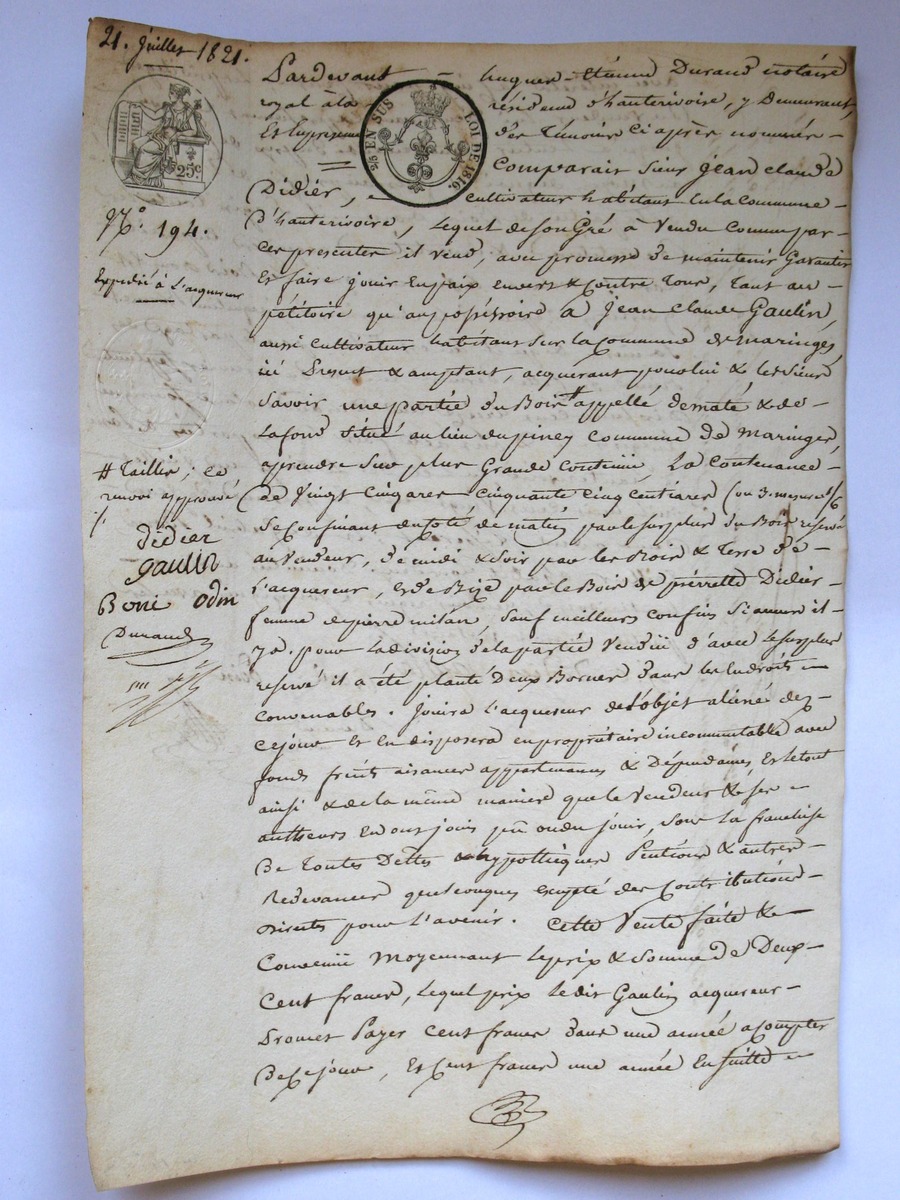 21. Juillet 1821.
25c.
2/5 EN SUS LOI DE 1816.
N.° 194.
Expedié à l'acquereur
# Taillis; ce
renvoi approuvé
didier
gaulin
Boni Odin
Durand
Pardevant hugues-Etienne Durand notaire
royal à la résidence d'hauterivoire, y Demeurant,
Et En presence des Témoins Ci après nommés -
Comparait Sieur Jean Claude
Didier, cultivateur habitant En la Commune -
d'hauterivoire, Lequel de Son Gré à Vendu Comme par -
Ces presentes il vend, avec promesse de maintenir Garantir
Et faire jouir En paix envers & Contre Tous, Tant au -
pétitoire qu'au possessoire à Jean Claude Gaulin,
aussi Cultivateur habitant Sur la Commune de Maringes
ici Present & acceptant, acquerant pour lui & les Siens
Savoir une partie du Bois # appellé de mate & de -
Lafond Situé au lieu du piney Commune de Maringes,
a prendre Sur plus Grande Contenue, La Contenance -
de Vingt Cinq ares Cinquante Cinq Centiares (ou 3. mesures 1/6
Se Confinant du Coté de matin par le Surplus du Bois reservé
au Vendeur, de midi & Soir par les Bois & Terre de -
l'acquereur, & de Bize par le Bois de pierrette Didier
femme de pierre milan, Sauf meilleurs Confins Si aucun il -
y a. pour la division de la partie Vendue d'avec le Surplus
reservé il a été planté Deux Bornes dans les Endroits -
Convenables. Jouira l'acquereur de l'objet aliené dez -
Ce jour Et En disposera en propriétaire incommutable avec
fonds fruits aisances appartenances & Dépendances Et le tout
ainsi & de la même maniere que le Vendeur & Ses -
autheurs En ont joui pû ou du jouir, Sous La franchise
De Toutes Dettes & hypothèques Pensions & autres -
Redevances quelconques excepté des Contributions -
directes pour l'avenir. Cette Vente faite & -
Convenue Moyennant le prix & Somme de Deux -
Cent francs, Lequel prix Ledit Gaulin acquereur -
Promet Payer Cent francs dans une année a Compter
De Ce jour, Et Cent francs une année En Suitte -